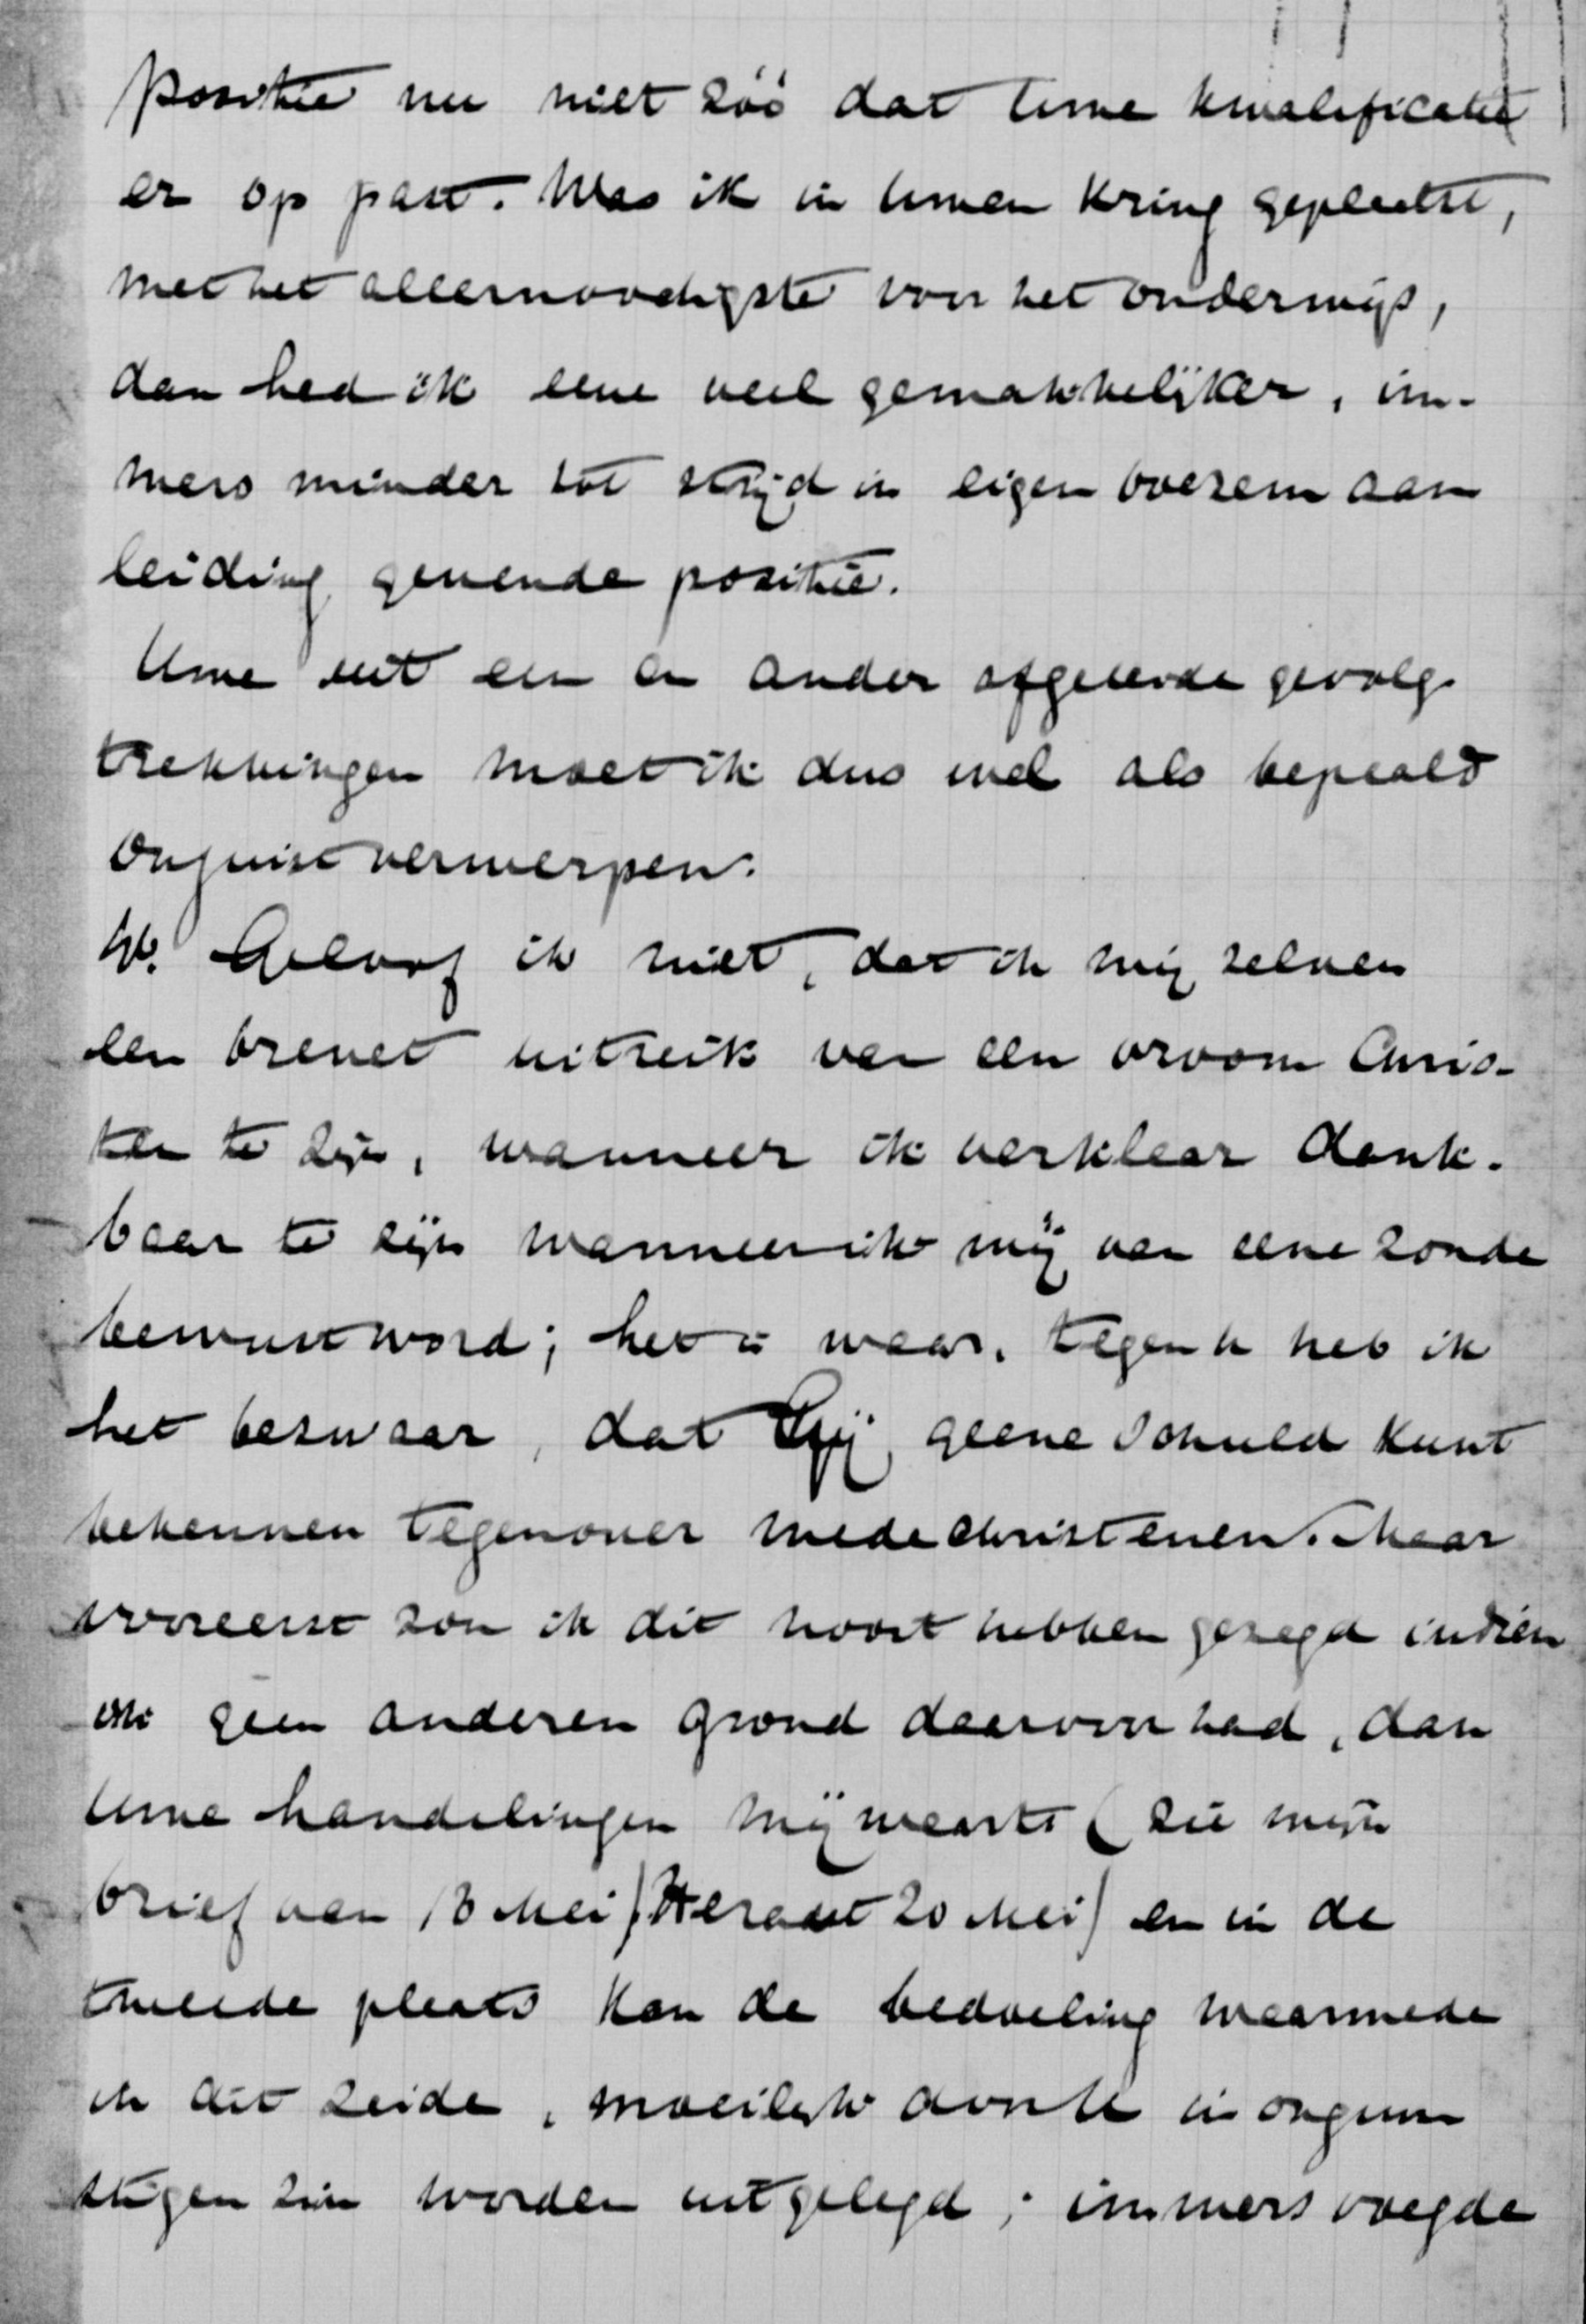 positie nu niet zóó dat Uwe kwalificatie
er op past. Was ik in Uwen kring geplaatst,
met het allernoodigste voor het onderwijs,
dan had ik eene veel gemakkelijker, im-
mers minder tot strijd in eigen boezem aan
leiding gevende positie.
Uwe uit een en ander afgeleide gevolg-
trekkingen moet ik dus wel als bepaald
onjuist verwerpen.
Geloof ik niet, dat ik mij zelven
een brevet uitreik van een vroom Chris-
ten te zijn, wanneer ik verklaar dank-
baar te zijn wanneer ik mij van eene zonde
bewust word; het is waar, tegen U heb ik
het bezwaar, dat Gij geene schuld kunt
bekennen tegenover medechristenen. Maar
vooreerst zou ik dit nooit hebben gezegd indien
ik geen anderen grond daarvoor had, dan
Uwe handelingen mijwaarts (zie mijn
brief van 18 Mei / Heraut 20 Mei) en in de
tweede plaats kan de bedoeling waarmede
ik dit zeide, moeilijk door U in ongun
stigen zin worden uitgelegd; immers voegde